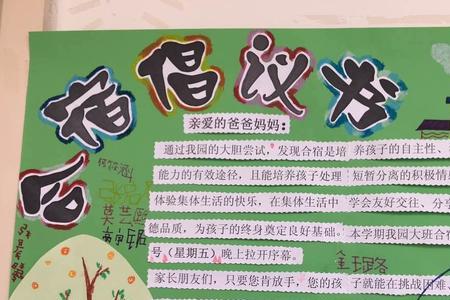 合宿倡议书
亲爱的爸爸妈妈：
通过我园的大胆尝试，发现合宿是培养孩子的自主性、
能力的有效途径，且能培养孩子处理短暂分离的积极情
体验集体生活的快乐，在集体生活中学会友好交往、分享
德品质，为孩子的终身奠定良好基础。本学期我园大班合
号（星期五）晚上拉开序幕。
家长朋友们，只要您肯放手，您的孩子就能在挑战困难、